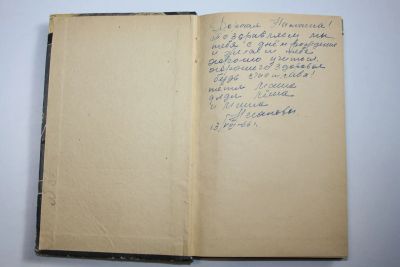 Дорогая Наташа!
поздравляем мы
тебя с днём рождения
и желаем тебе
хорошо учиться
хорошего здоровья
будь счастлива!
тётя Маша
дядя Лёша
и Миша
13/VIII-66 г.